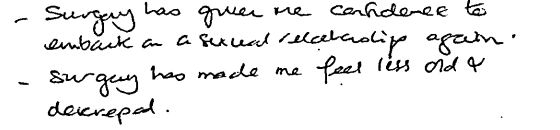 - Surgery has given me confidence to
embark on a sexual relationship again.
- Surgery has made me feel less old &
decrepal.